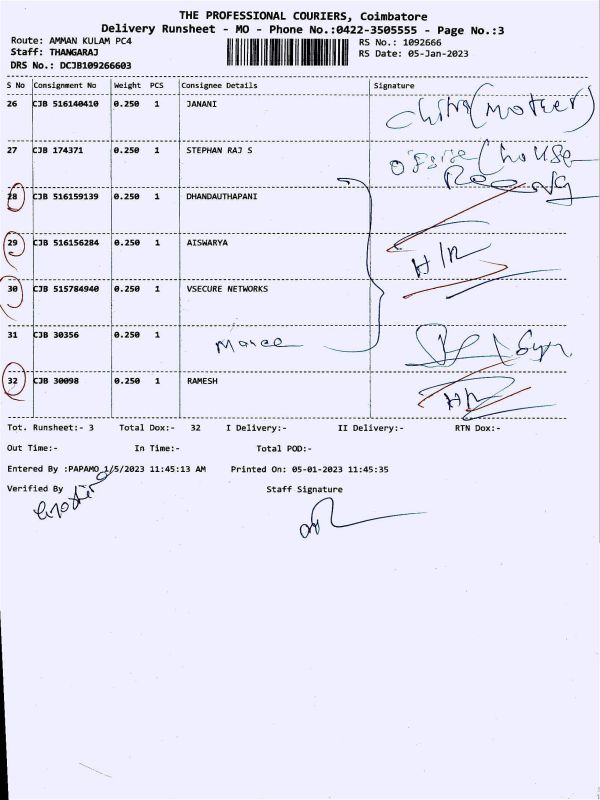 THE PROFESSIONAL COURIERS, Coimbatore
Delivery Runsheet - MO - Phone No.:0422-3505555 - Page No.:3
Route: AMMAN KULAM PC4 RS No.: 1092666
Staff: THANGARAJ RS Date: 05-Jan-2023
DRS No.: DCJB109266603
S No Consignment No Weight PCS Consignee Details Signature
26 CJB 516140410 0.250 1 JANANI Chitra (mother)
27 CJB 174371 0.250 1 STEPHAN RAJ S (house
28 CJB 516159139 0.250 1 DHANDAUTHAPANI
29 CJB 516156284 0.250 1 AISWARYA H/R
30 CJB 515784940 0.250 1 VSECURE NETWORKS
31 CJB 30356 0.250 1
32 CJB 30098 0.250 1 RAMESH H/R
Tot. Runsheet:- 3 Total Dox:- 32 I Delivery:- II Delivery:- RTN Dox:-
Out Time:- In Time:- Total POD:-
Entered By :PAPAMO 1/5/2023 11:45:13 AM Printed On: 05-01-2023 11:45:35
Verified By Staff Signature